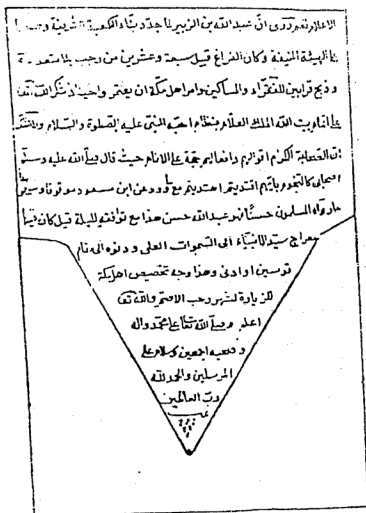 الاعلام نعم روى ان عبد الله بن الزبير لما جدد بناء الكعبة الشريفة
على الهيئة المنيفة وكان الفراغ قبيل سبعة وعشرين من رجب
وذبح قرابين للفقراء والمساكين وامر اهل مكة ان يعتمروا حينئذ شكرا لله تعالى
على ان بيت الله الملك العلام بنظام احبه النبي عليه الصلوة والسلام
ان الصحابة الكرام اقوالهم وافعالهم حجة على الانام حيث قال صلى الله عليه وسلم
اصحابي كالنجوم بايهم اقتديتم اهتديتم مع ورود عن ابن مسعود موقوفا
ما رواه المسلمون حسنا فهو عند الله حسن هذا مع توافقه لليلة قيل كان فيها
معراج سيد الانبياء الى السموات العلى ودنوه الى مقام
قوسين او ادنى وهذا وجه تخصيص اهل مكة
للزيارة لشهر رجب الاصم والله تعالى
اعلم وصلى الله تعالى على محمد واله
وصحبه اجمعين وسلام على
المرسلين والحمد لله
رب العالمين
تمت